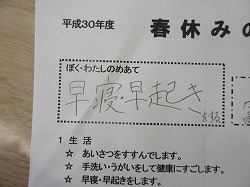 平成30年度
春休みの
ぼく・わたしのめあて
早寝・早起き
1 生活
☆ あいさつをすすんでします。
☆ 手洗い・うがいをして健康にすごします。
☆ 早寝・早起きをします。